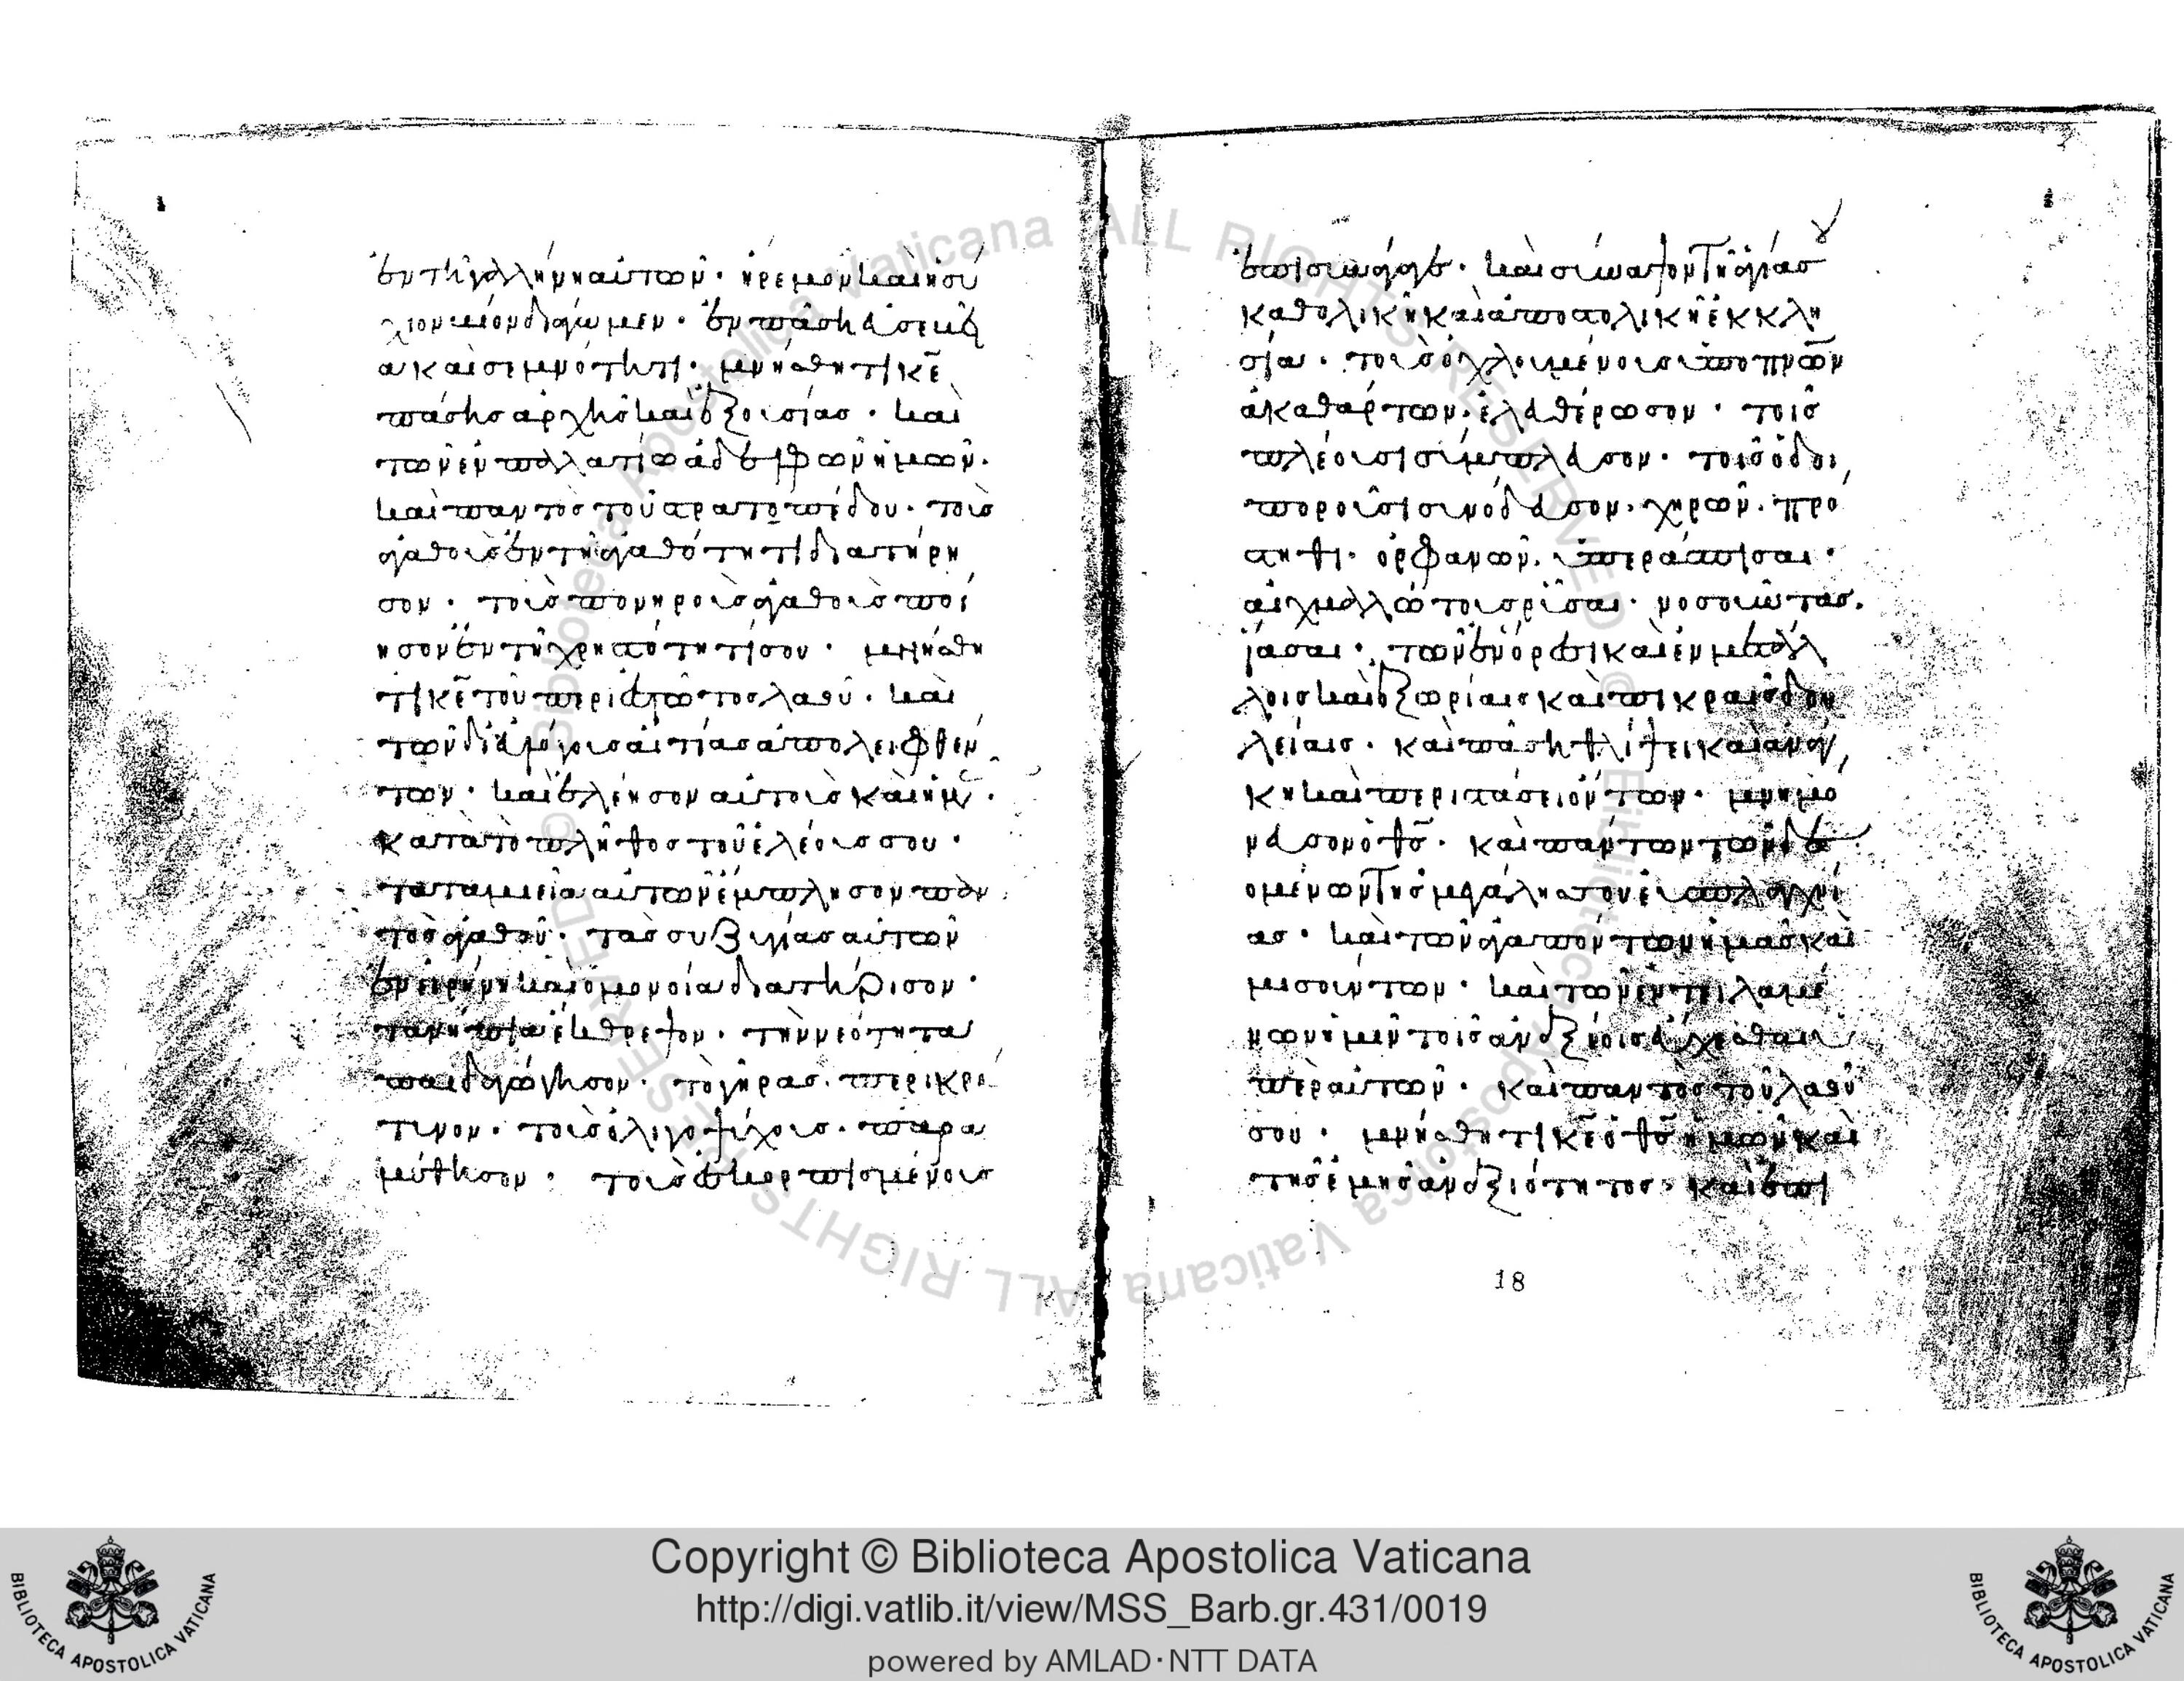 ἐν τῆ γαλλήνη αὐτῶν· ἤρεμον καὶ ἡσύ
χιον βίον διάγωμεν· ἐν πάση εὐσεβεί
α καὶ σεμνότητι· μνήσθητι κε̄
πάσης ἀρχῆς καὶ ἐξουσίας· καὶ
τῶν ἐν παλλατίω ἀδελφῶν ἡμῶν·
καὶ παντὸς τοῦ στρατοπέδου· τοὺς
ἀγαθοὺς ἐν τῆ ἀγαθότητι διατήρη
σον· τοὺς πονηροὺς ἀγαθοὺς ποί
ησον ἐν τῆ χρηστότητί σου· μνήσθη
τι κε̄ τοῦ περιεστῶτος λαοῦ· καὶ
τῶν δι' εὐλόγους αἰτίας ἀπολειφθέν
των· καὶ ἐλέησον αὐτοὺς καὶ ἡμᾶς·
κατὰ τὸ πλῆθος τοῦ ἐλέους σου·
τὰ ταμεῖα αὐτῶν ἔμπλησον παν
τὸς ἀγαθοῦ· τὰς συζυγίας αὐτῶν
ἐν εἰρήνη καὶ ὁμονοία διατήρισον·
τὰ νήπια ἔκθρεψον· τὴν νεότητα
παιδαγώγησον· τὸ γῆρας περικρά
τυνον· τοὺς ὀλιγοψύχους παρα
μύθησον· τοὺς ἐσκορπισμένους
ἐπισυνάγαγε· καὶ σύναψον τῆ ἁγία σου
καθολικῆ καὶ ἀποστολικῆ ἐκκλη
σία· τοὺς ὀχλουμένους ὑπὸ πνων
ἀκαθάρτων ἐλευθέρωσον· τοῖς
πλέουσι σύμπλευσον· τοῖς ὁδοι
ποροῦσι συνόδευσον· χηρῶν· πρό
στηθι· ὀρφανῶν ὑπεράσπισαι·
αἰχμαλώτους ρῦσαι· νοσοῦντας
ἴασαι· τῶν ἐν ὄρεσι καὶ ἐν μετάλ
λοις καὶ ἐξορίαις καὶ πικραῖς δου
λείαις· καὶ πάση θλίψει καὶ ἀνάγ
κη καὶ περιστάσει ὄντων· μνημό
νευσον ὁ θς̄· καὶ πάντων τῶν δε
ομένων τῆς μεγάλης σου εὐσπλαγχνί
ας· καὶ τῶν ἀγαπόντων ἡμᾶς καὶ
μισούντων· καὶ τῶν ἐντειλαμέ
νων ἡμῖν τοῖς ἀναξίοις εὔχεσθαι ὑ
πὲρ αὐτῶν· καὶ παντὸς τοῦ λαοῦ
σου· μνήσθητι κε̄ ὁ θς̄ ἡμῶν καὶ
τῆς ἐμῆς ἀναξιότητος· καὶ ἐπὶ
18
Copyright © Biblioteca Apostolica Vaticana
http://digi.vatlib.it/view/MSS_Barb.gr.431/0019
powered by AMLAD·NTT DATA
BIBLIOTECA APOSTOLICA VATICANA
BIBLIOTECA APOSTOLICA VATICANA